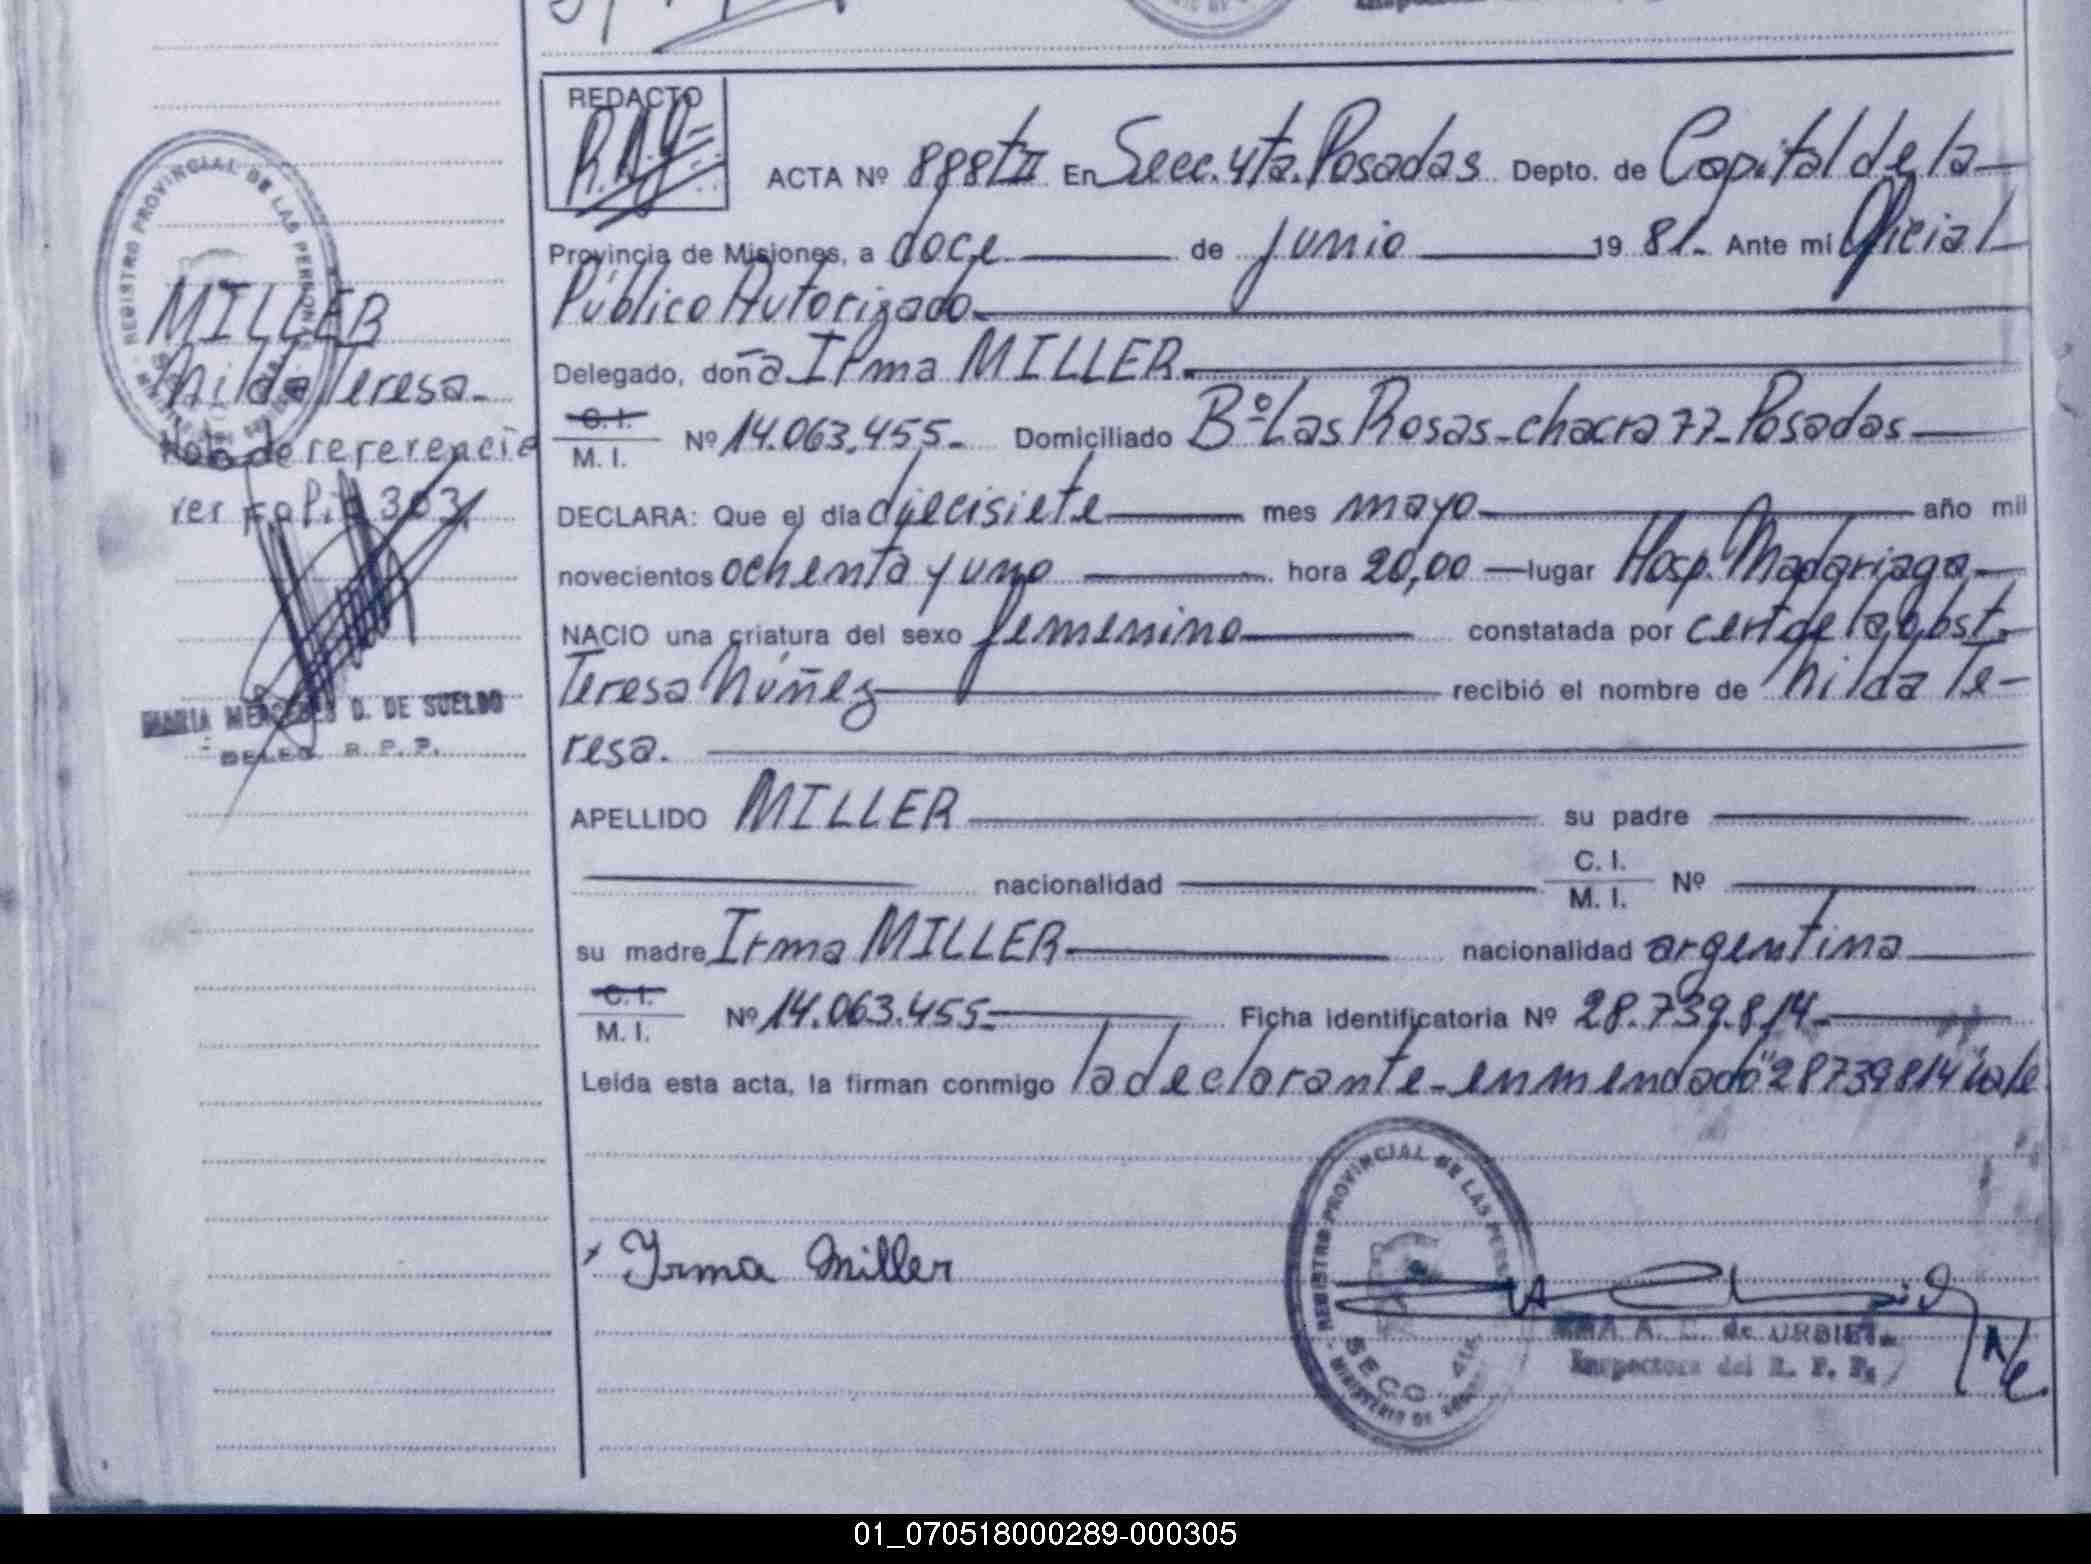 REDACTO
ACTA Nº 888 tII En Secc. 4ta. Posadas Depto. de Capital de la
Provincia de Misiones, a doce de junio 1981. Ante mí Oficial
Público Autorizado
Delegado, doña Irma MILLER.
C. I.
M. I. Nº 14.063.455. Domiciliado Bº Las Rosas - chacra 77 - Posadas
DECLARA: Que el día diecisiete mes mayo año mil
novecientos ochenta y uno hora 20,00 lugar Hosp. Madariaga
NACIO una criatura del sexo femenino constatada por cert de la obst.
Teresa Núñez recibió el nombre de Nilda Te-
resa.
APELLIDO MILLER su padre
nacionalidad C. I. M. I. Nº
su madre Irma MILLER nacionalidad argentina
C. I.
M. I. Nº 14.063.455. Ficha identificatoria Nº 28.739.814
Leída esta acta, la firman conmigo la declarante - enmendado "28739814" vale
Irma Miller
REGISTRO PROVINCIAL DE LAS PERSONAS
SECC. 4ta.
MINISTERIO DE
A. E. de URBIETA
Inspectora del R. P. P.
REGISTRO PROVINCIAL DE LAS PERSONAS
MILLER
Nilda Teresa.
Nota de referencia
ver folio 303
MARIA MERCEDES D. DE SUELDO
DELEG. R. P. P.
01_070518000289-000305